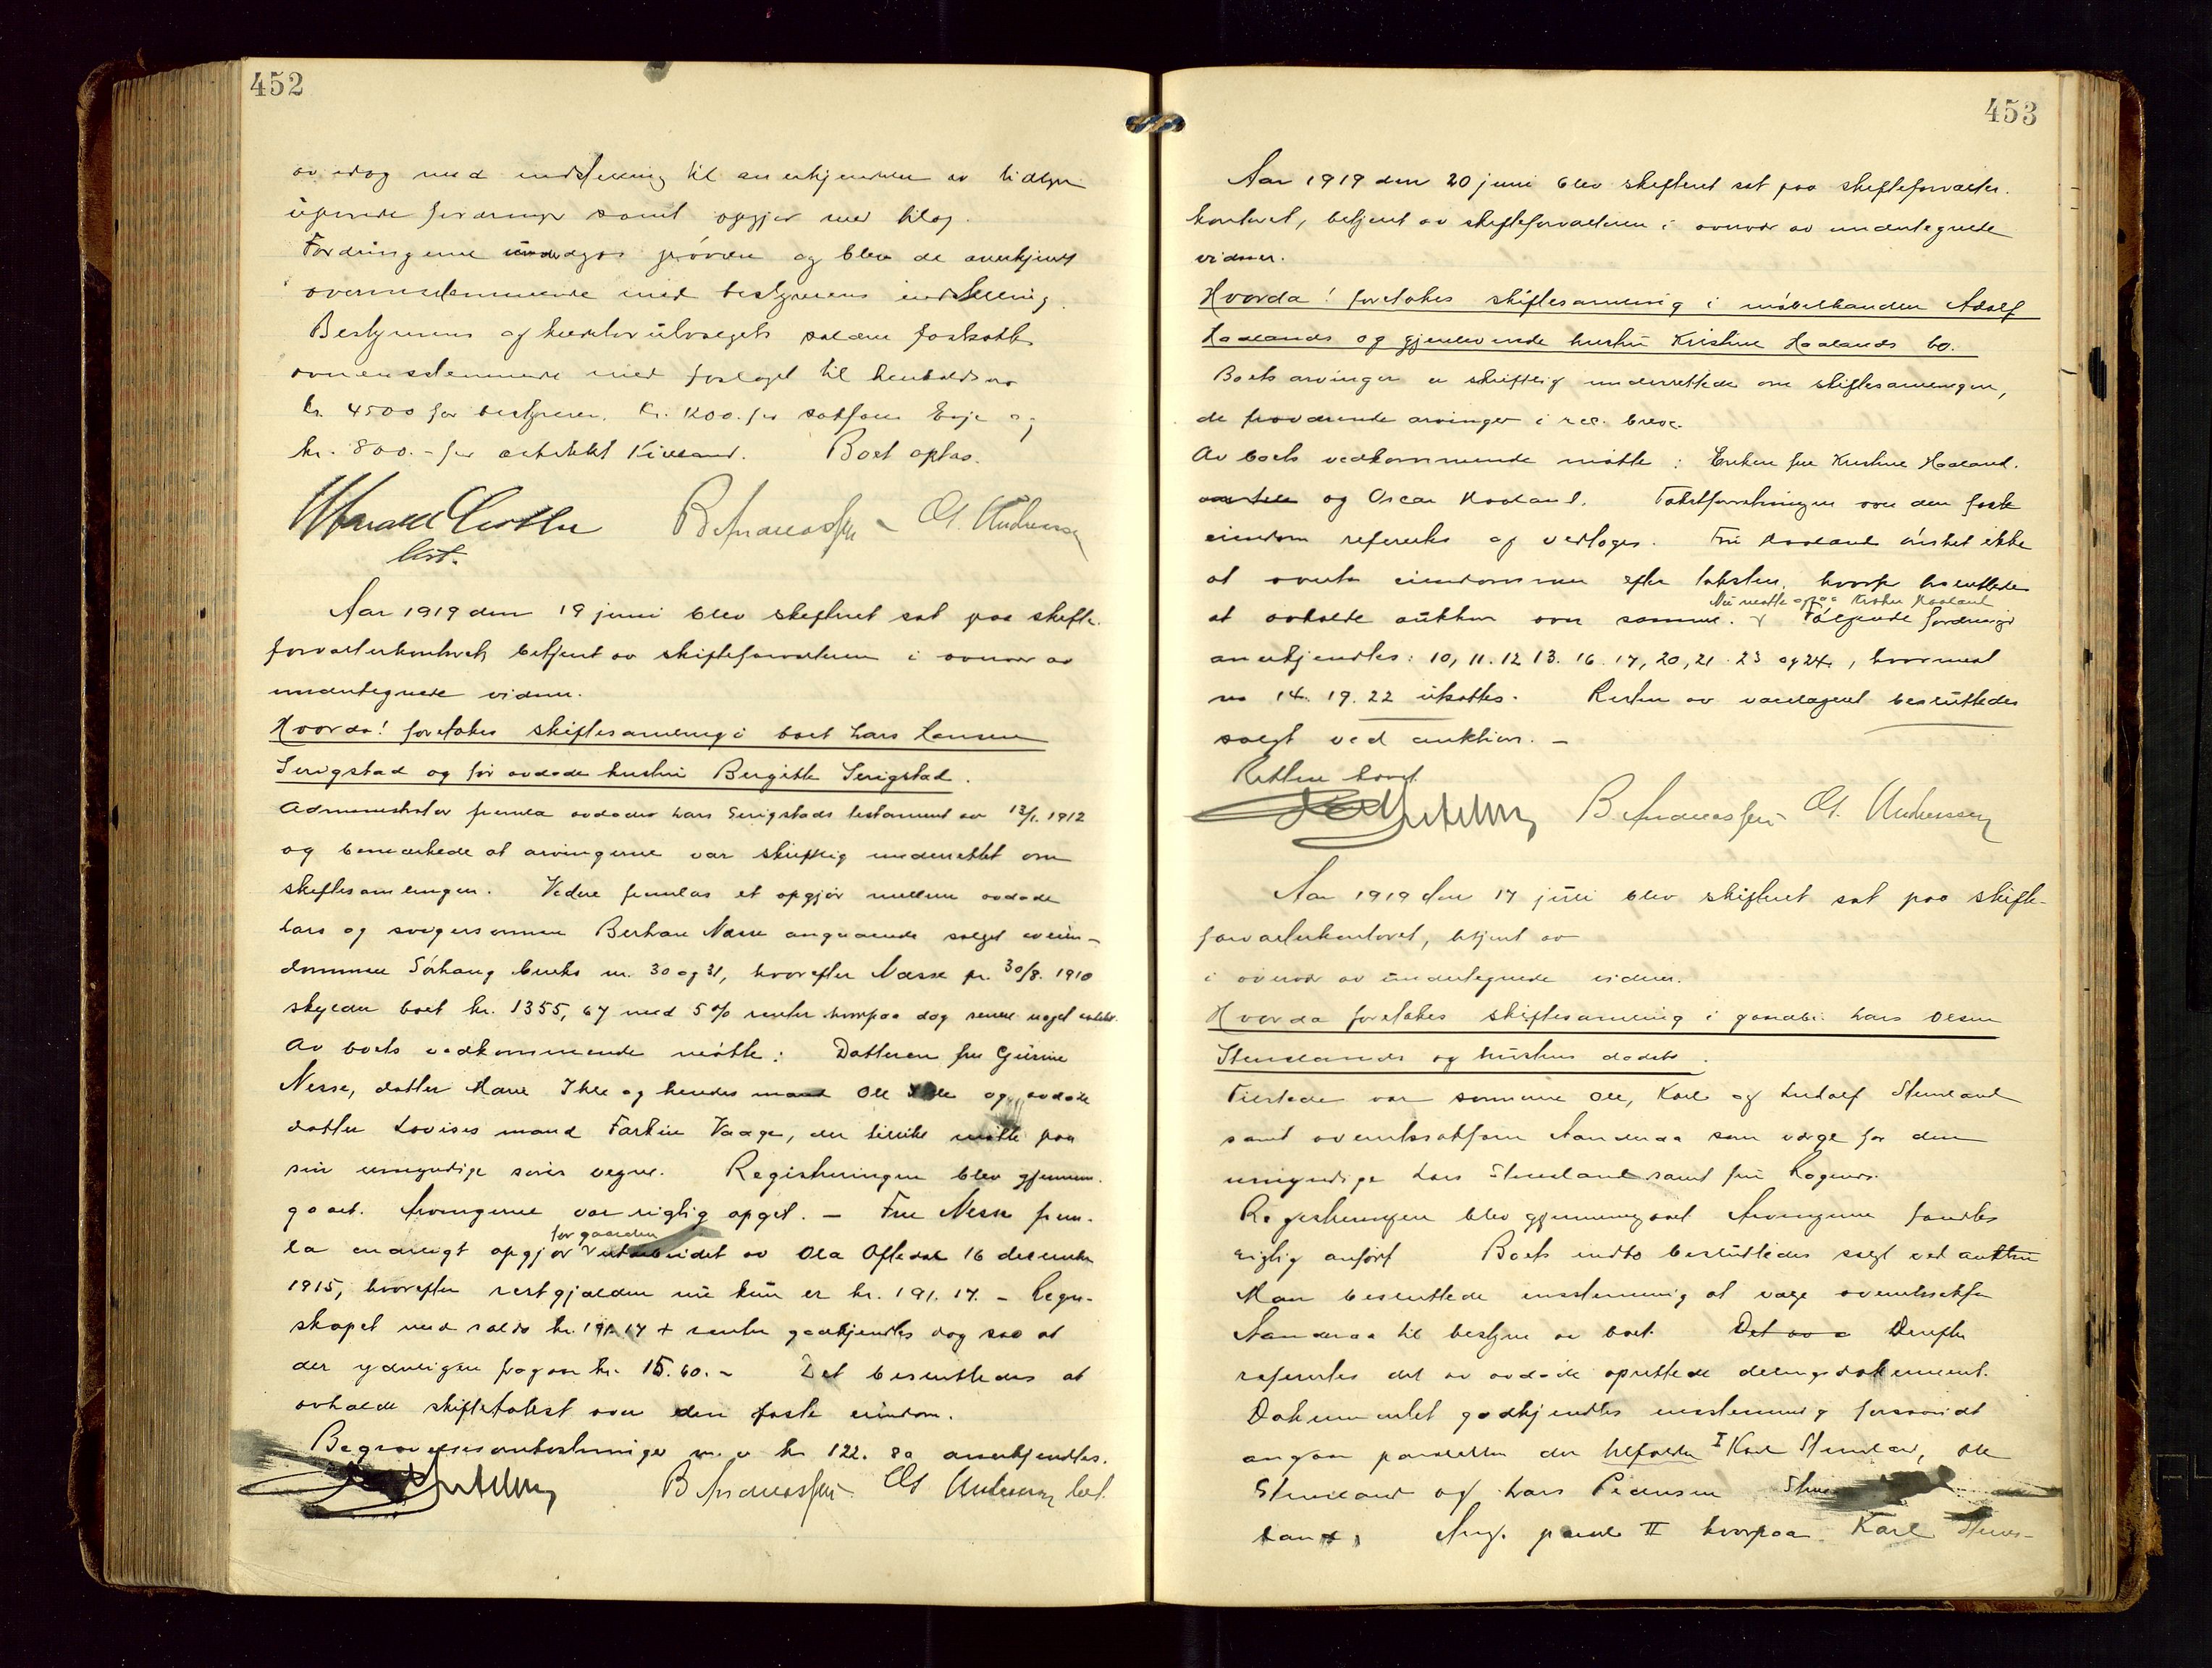 452
av idag med indstilling til anerkjendelse av tidligere
uprøvede fordringer samt opgjør med bilag.
Fordringerne undergos prøvelse og blev de anerkjendt
overensstemmende med bestyrerens indstilling.
Bestyrerens og kreditorutvalgets salær fastsattes
overensstemmende med forslaget til henholdsvis
kr. 4500 for bestyreren, kr. 1200.- for sakfører Erje og
kr. 800.- for arkitekt Kielland. Boet optas.
B Andreassen G. Andersen
Aar 1919 den 19 juni blev skifteret sat paa skifte-
forvalterkontoret, betjent av skifteforvalteren i overvær av
undertegnede vidner.
Hvorda! foretakes skiftesamling i boet Lars Hansen
Serigstad og før avdøde hustru Birgitte Serigstad.
Administrator fremla avdøde Lars Serigstads testament av 13/1. 1912
og bemerkede at arvingerne var skriftlig underrettet om
skiftesamlingen. Videre fremlas et opgjør mellem avdøde
Lars og svigersønnen Berhan Nesse angaaende salget av eien-
dommen Sørhaug bruks nr. 30 og 31, hvorefter Nesse pr. 30/8. 1910
skylder boet kr. 1355,67 med 5% renter hvorpaa dog senere noget
Av boets vedkommende møtte: Datteren fru Gurine
Nesse, datter Marie Ihle og hendes mand Ole Ihle og avdøde
datter Lovises mand Vaage, der tillike møtte paa
sin umyndige søns vegne. Registreringen blev gjennem-
gaaet. Arvingerne var rigtig opgit. – Fru Nesse frem-
for gaarden
la endeligt opgjør utarbeidet av Ola Oftedal 16 december
1915, hvorefter restgjælden nu kun er kr. 191.17. – Regn-
skapet med saldo kr. 191.17 + renter godkjendtes dog saa at
der yderligere fragaar kr. 15.60.– Det besluttedes at
avholde skiftetakst over den faste eiendom.
Begravelsesomkostninger m.v kr 122.80 anerkjendtes.
B Andreassen G Andersen
453
Aar 1919 den 20 juni blev skifteret sat paa skifteforvalter-
kontoret, betjent av skifteforvalteren i overvær av undertegnede
vidner.
Hvorda! foretakes skiftesamling i møbelhandler Adolf
Haalands og gjenlevende hustru Kristine Haalands bo.
Boets arvinger er skriftlig underrettede om skiftesamlingen,
de fraværende arvinger i rec. breve.
Av boets vedkommende møtte: Enken fru Kristine Haaland.
og Oscar Haaland. Takstforretningen over den faste
eiendom refereertes og vedtoges. Fru Haaland ønsket ikke
at overta eiendommen efter taksten, hvorfor besluttedes
Nu møtte ogsaa Haaland
at avholde auktion over samme. Følgende fordringer
anerkjendtes: 10, 11. 12 13. 16. 17, 20, 21. 23 og 24, hvorimot
no 14. 19. 22 utsattes. Resten av varelageret besluttedes
solgt ved auktion. –
Retten hævet.
B. Andreassen G. Andersen
Aar 1919 den 17 juli blev skifteret sat paa skifte-
forvalterkontoret, betjent av
i overvær av undertegnede vidner.
Hvorda foretakes skiftesamling i gaardbr. Lars Olsen
Stenslands og hustrus dødsbo.
Tilstede var sønnene Ole, Karl og Ludolf Stensland
samt overretssakfører Aanderaa som værge for den
umyndige Lars Stensland samt fru
Registreringen blev gjennemgaaet Arvingerne fandtes
rigtig anført Boets indbo besluttedes solgt ved auktion
Man besluttede enstemmig at vælge overretssakfører
Aanderaa til bestyrer av boet. Det av a Derefter
refereertes det av avdøde oprettede delingsdokument.
Dokumentet godkjendtes enstemmig forsaavidt
angaar parcellen der tilfalder I Karl Stensland, Ole
Stensland og Lars Pedersen Stens
land, Ang. parcel II hvorpaa Karl Stens-